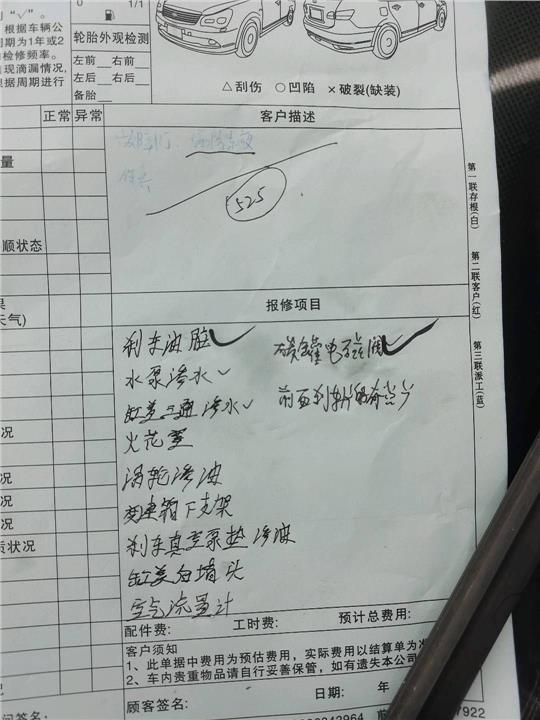 0 1/1
引“√”。
根据车辆公
周期为1年或2
检修频率。
现滴漏情况,
根据周期进行
轮胎外观检测
左前__右前__
左后__右后__
备胎__
△刮伤 ○凹陷 ×破裂(缺装)
正常 异常
客户描述
525
量
顺状态
天气)
况
况
况
况
质状况
第一联存根(白)
第二联客户(红)
第三联派工(蓝)
报修项目
刹车油脏 ✓
碳罐电磁阀 ✓
水泵渗水 ✓
缸盖三通渗水 ✓
火花塞
涡轮渗油
变速箱下支架
刹车真空泵垫渗油
缸盖白堵头
空气流量计
配件费: 工时费: 预计总费用:
客户须知
1、此单据中费用为预估费用,实际费用以结算单为准
2、车内贵重物品请自行妥善保管,如有遗失本公司
日期: 年
问签名: 顾客签名:
7922